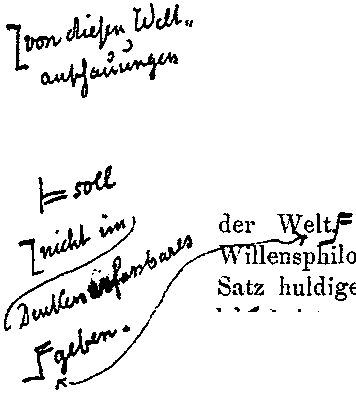 von diesen Welt-
anschauungen
soll
nicht im
Denken erfassbares
geben.
der Welt.
Willensphilo
Satz huldige